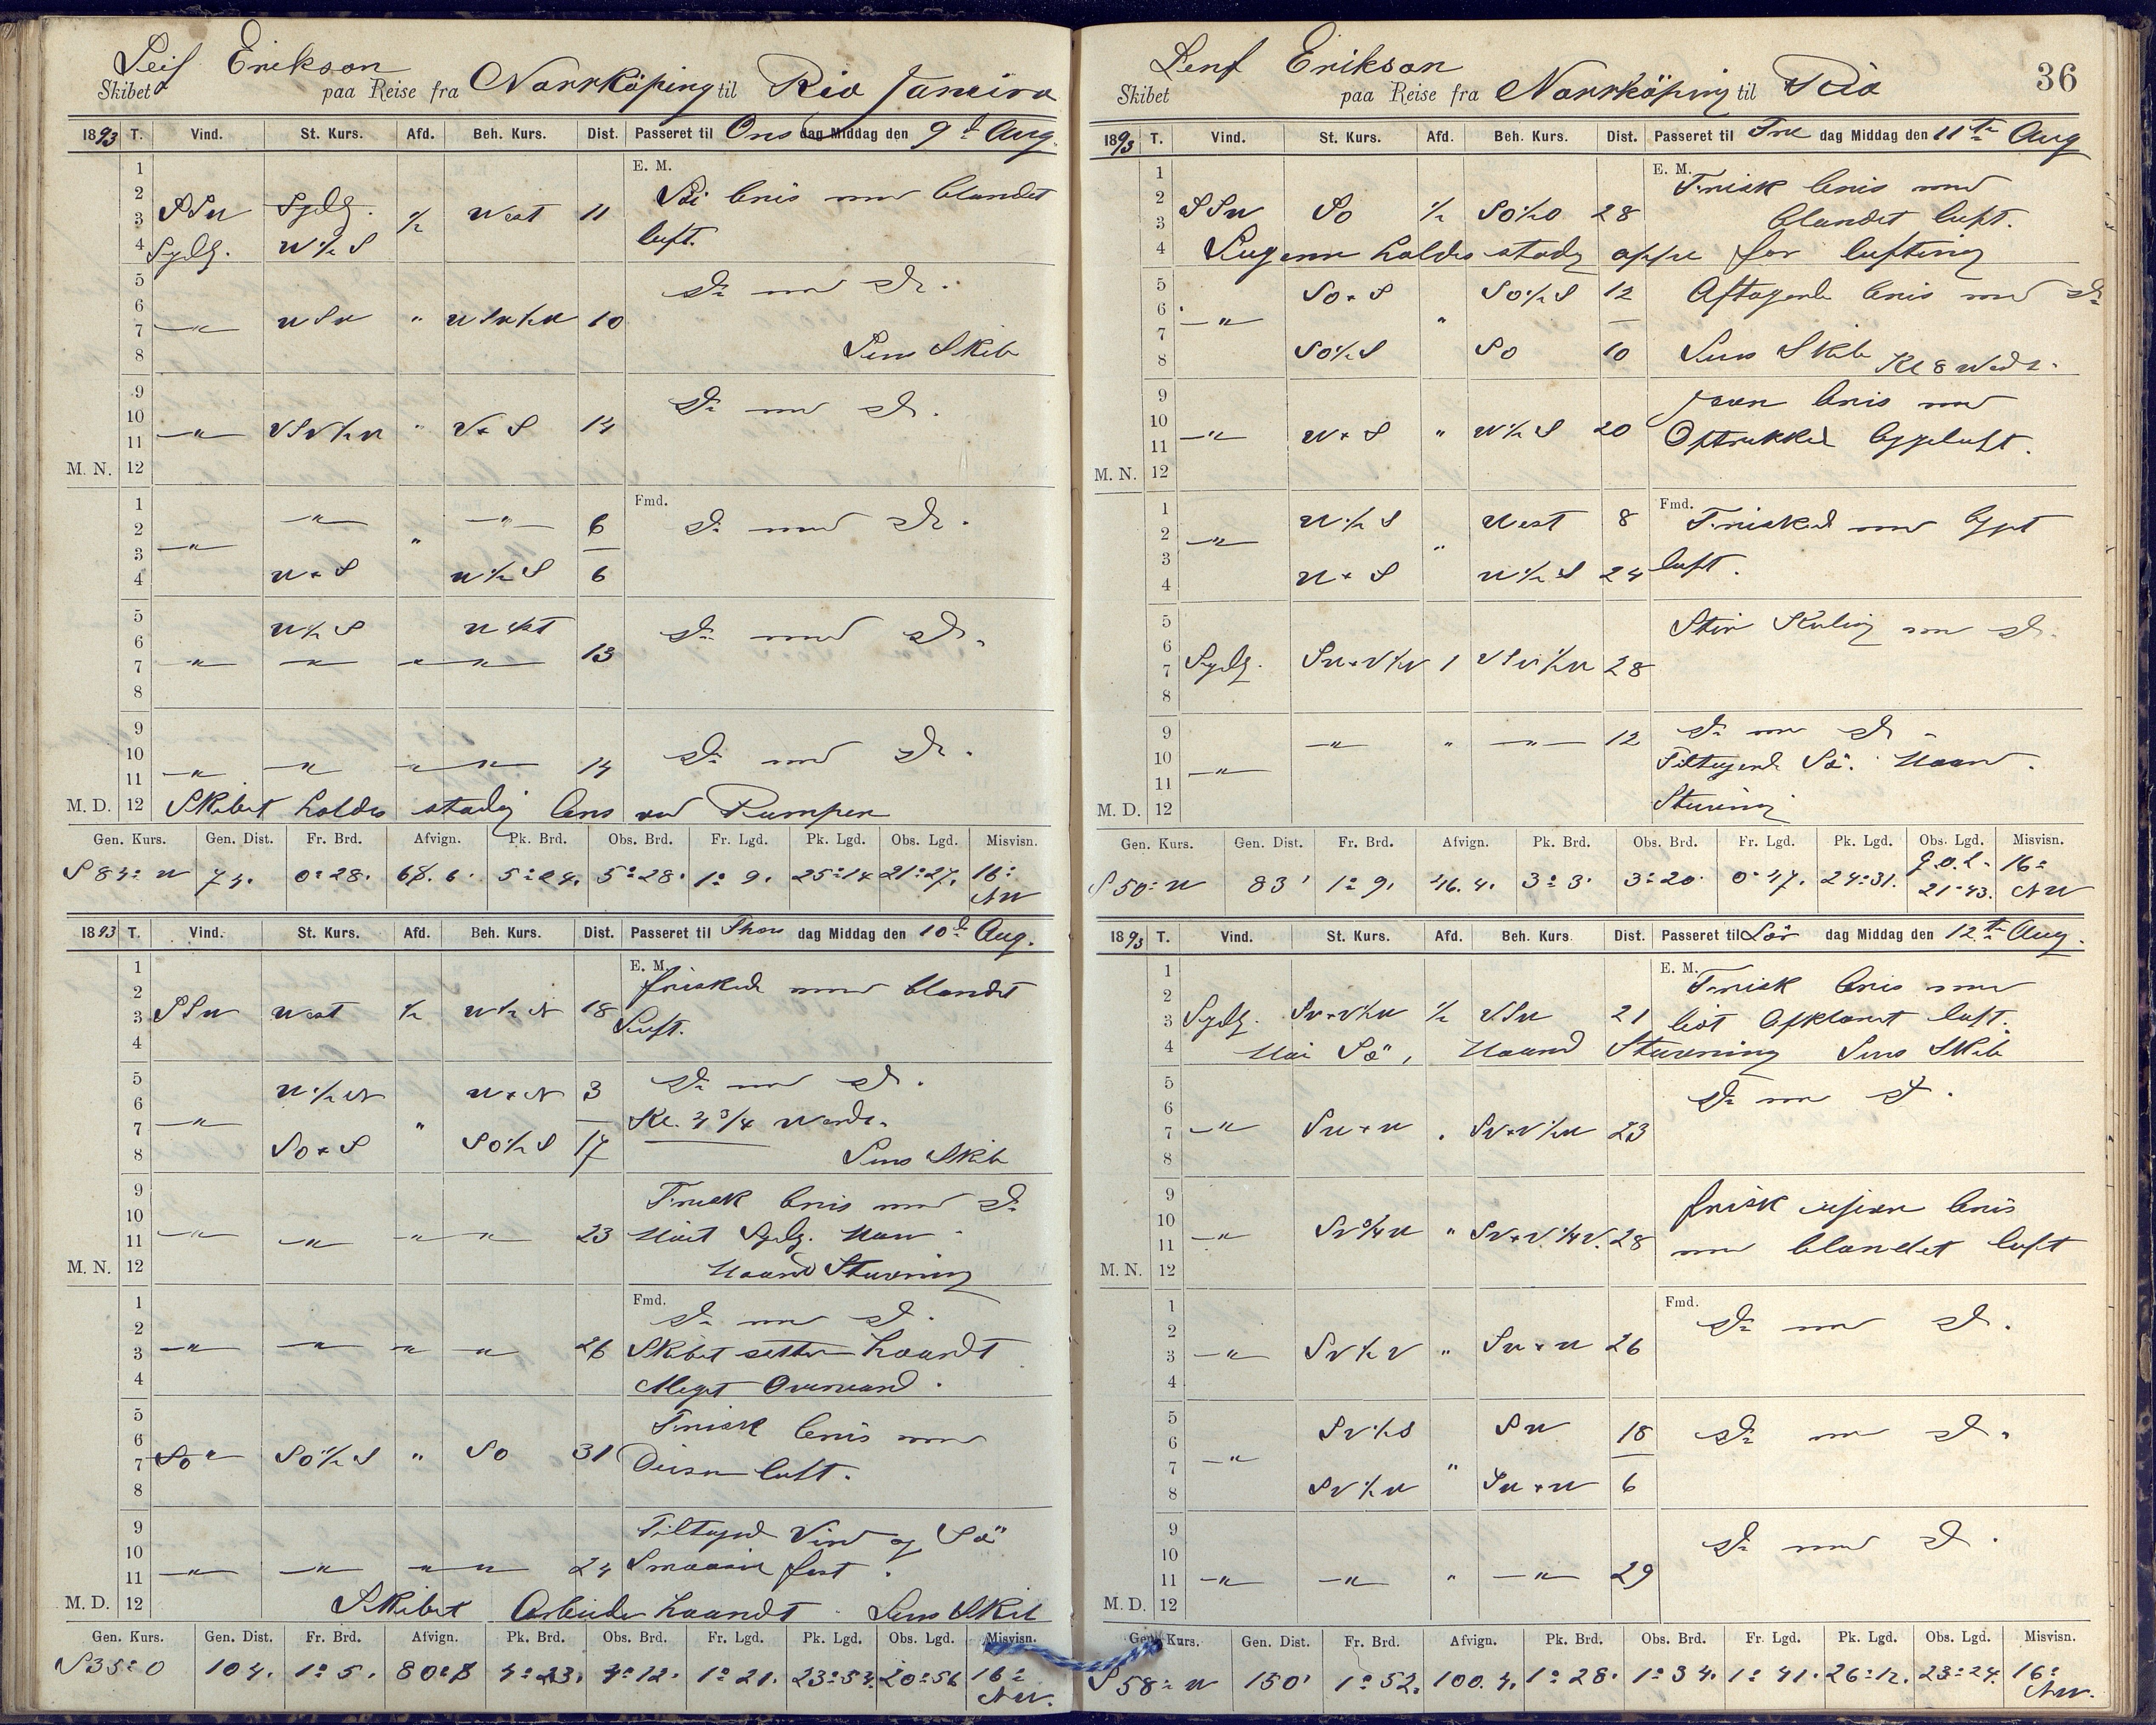 Leif Erikson
Skibet paa Reise fra Norrköping til Rio Janeiro
1893 T. Vind. St. Kurs. Afd. Beh. Kurs. Dist. Passeret til Ons dag Middag den 9d Aug.
E. M.
1
2 blandet
3 SSW Sydlg. ½ West 11
4 Sydlg. W½S luft.
5 Do med Do.
6
7 —"— WSW " WSW½W 10
8 Lens Skib
9 Do med Do.
10
11 —"— VSV½W " V+S 14
M. N. 12
Fmd.
1 —"— —"— 6 Do med Do.
2 —"— "
3
4 W+S W½S 6
5 W½S West Do med Do.
6
7 —"— —"— —"— 13
8
9 Do med Do.
10
11 —"— —"— —"— 14
M. D. 12 Skibet holdes stadig lens ved Pumpen
Gen. Kurs. Gen. Dist. Fr. Brd. Afvign. Pk. Brd. Obs. Brd. Fr. Lgd. Pk. Lgd. Obs. Lgd. Misvisn.
S 84° W 74. 0°28. 5°24. 5°28. 1°9. 25°14 21°27. 16° NW
1893 T. Vind. St. Kurs. Afd. Beh. Kurs. Dist. Passeret til Thors dag Middag den 10d Aug.
E. M.
1 friskede med blandet
2
3 SSW West ½ W½N 18 Luft.
4
5 W½N W+N 3 Do med Do.
6
7 —"— " Kl. 4¾ Vendt.
8 SO+S SO½S 17 Lens Skib
9 Frisk bris med Do
10
11 —"— —"— —"— 23
M. N. 12 Haard Stuvning
Fmd.
1 Do med Do.
2
3 —"— —"— —"— 26 Skibet sætter haardt
4 Meget Overvand.
5 Frisk bris med
6
7 SO½S " SO 31 Diisen luft.
8
9 Tiltagend Vind og Sø
10
11 —"— —"— —"— 24 Smaaseil fast.
M. D. 12 Skibet Arbeider haardt. Lens Skib
Gen. Kurs. Gen. Dist. Fr. Brd. Afvign. Pk. Brd. Obs. Brd. Fr. Lgd. Pk. Lgd. Obs. Lgd. Misvisn.
S 35° O 104. 1°5. 4°23. 4°12. 1°21. 23°54. 20°56 16° NW.
36
Leif Erikson
Skibet paa Reise fra Norrköping til Rio
1893 T. Vind. St. Kurs. Afd. Beh. Kurs. Dist. Passeret til Fre dag Middag den 11te Aug
E. M.
1 Frisk bris med
2
3 SSW SO ½ SO½O 28 blandet luft.
4 Lugerne holdes stadig oppe for lufting
5 SO+S SO½S 12 Aftagende bris med Do
6
7 —"— "
8 SO½S SO 10 Lens Skib Kl 8 Vendt.
9 Jævn bris med
10
11 —"— W+S " W½S 20 Optrukken bygeluft.
M. N. 12
Fmd.
1 W½S West 8 Friskede med byget
2 —"—
3 "
4 W+S W½S 24 luft.
5 Stiv Kuling med Do.
6
7 Sydlg. SW+V½V 1 VSV½W 28
8
9 —"— " —"— 12 Do med Do
10 Tiltagende Sø. Haard.
11 —"—
M. D. 12 Stuvning
Gen. Kurs. Gen. Dist. Fr. Brd. Afvign. Pk. Brd. Obs. Brd. Fr. Lgd. Pk. Lgd. Obs. Lgd. Misvisn.
S 50° W 83' 1°9. 46.4. 3°3. 3°20. 0°47. 24°31. 21°43. 16° NW
1893 T. Vind. St. Kurs. Afd. Beh. Kurs. Dist. Passeret til Lör dag Middag den 12te Aug.
E. M.
1 Frisk bris med
2
3 Sydlg. SV+V½W ½ VSW 21 let Afklaret luft.
4 Høi Sø, Haard Stuvning Lens Skib
5 Do med Do.
6
7 —"— SW+W " SV+V½W 23
8
9 frisk ujævn bris
10
11 —"— SV¾W " SV+V¼V. 28 med blandet luft
M. N. 12
Fmd.
1 Do med Do.
2
3 —"— SV½V " SW+W 26
4
5 SV½S SW 18 Do med Do.
6 —"—
7 "
8 SV½W SW+W 6
9 Do med Do.
10
11 —"— —"— " —"— 29
M. D. 12
Gen. Kurs. Gen. Dist. Fr. Brd. Afvign. Pk. Brd. Obs. Brd. Fr. Lgd. Pk. Lgd. Obs. Lgd. Misvisn.
S 58° W 150' 1°52. 100.4. 1°28. 1°34. 1°41. 26°12. 23°24. 16° NW.